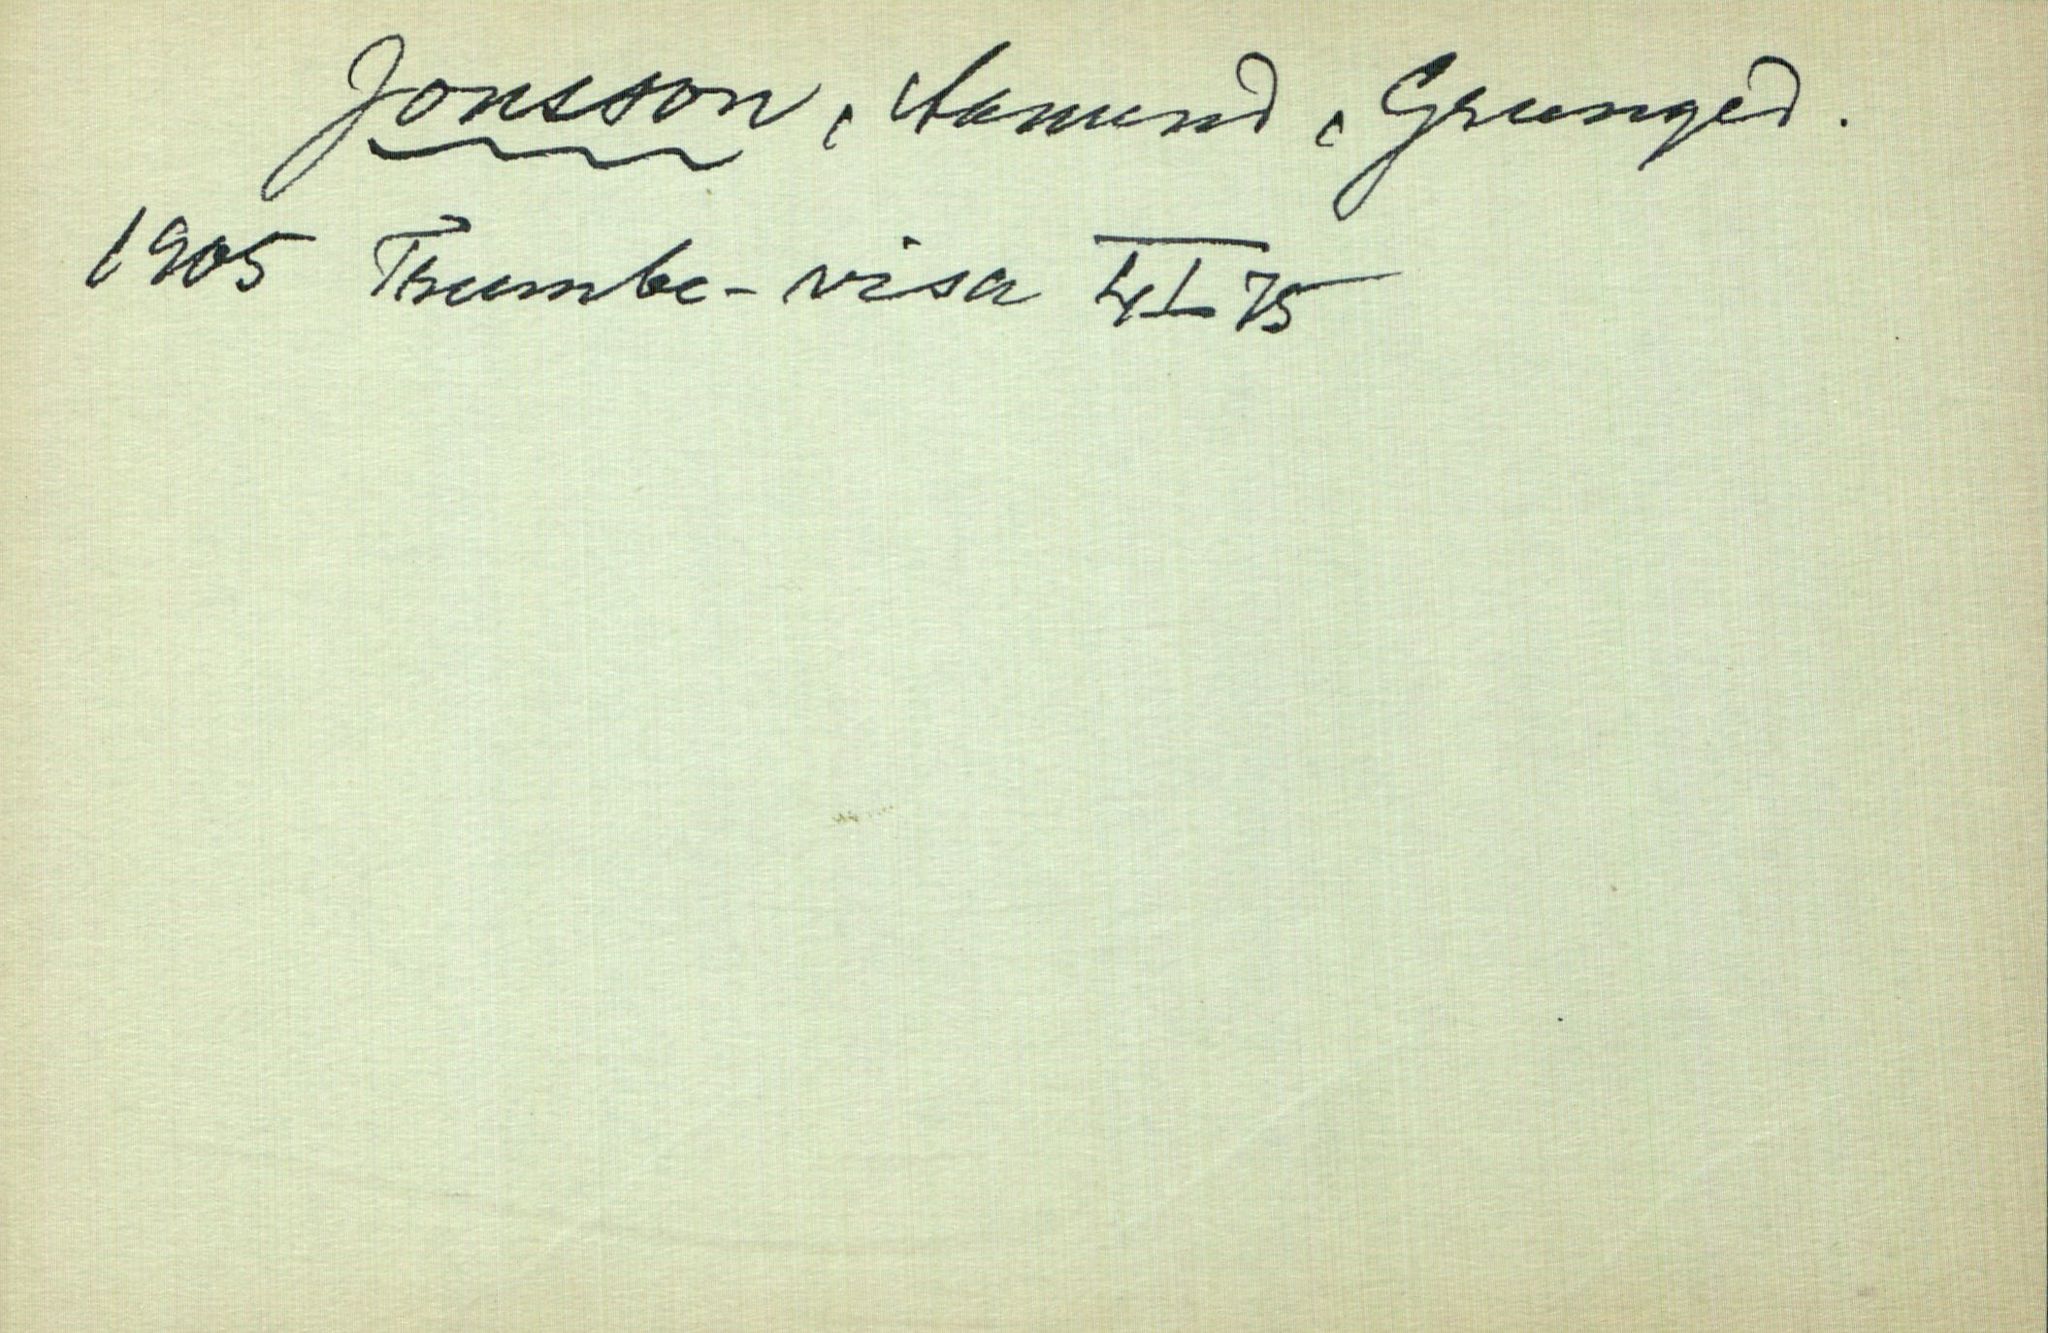 Jonsson, Aamund, Grunged.
1905 Trumbe-visa 75